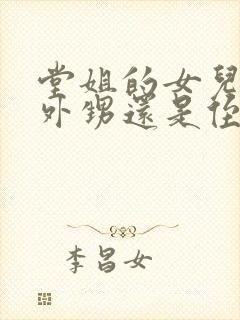 堂姐的女兒
外甥還是侄
李昌女